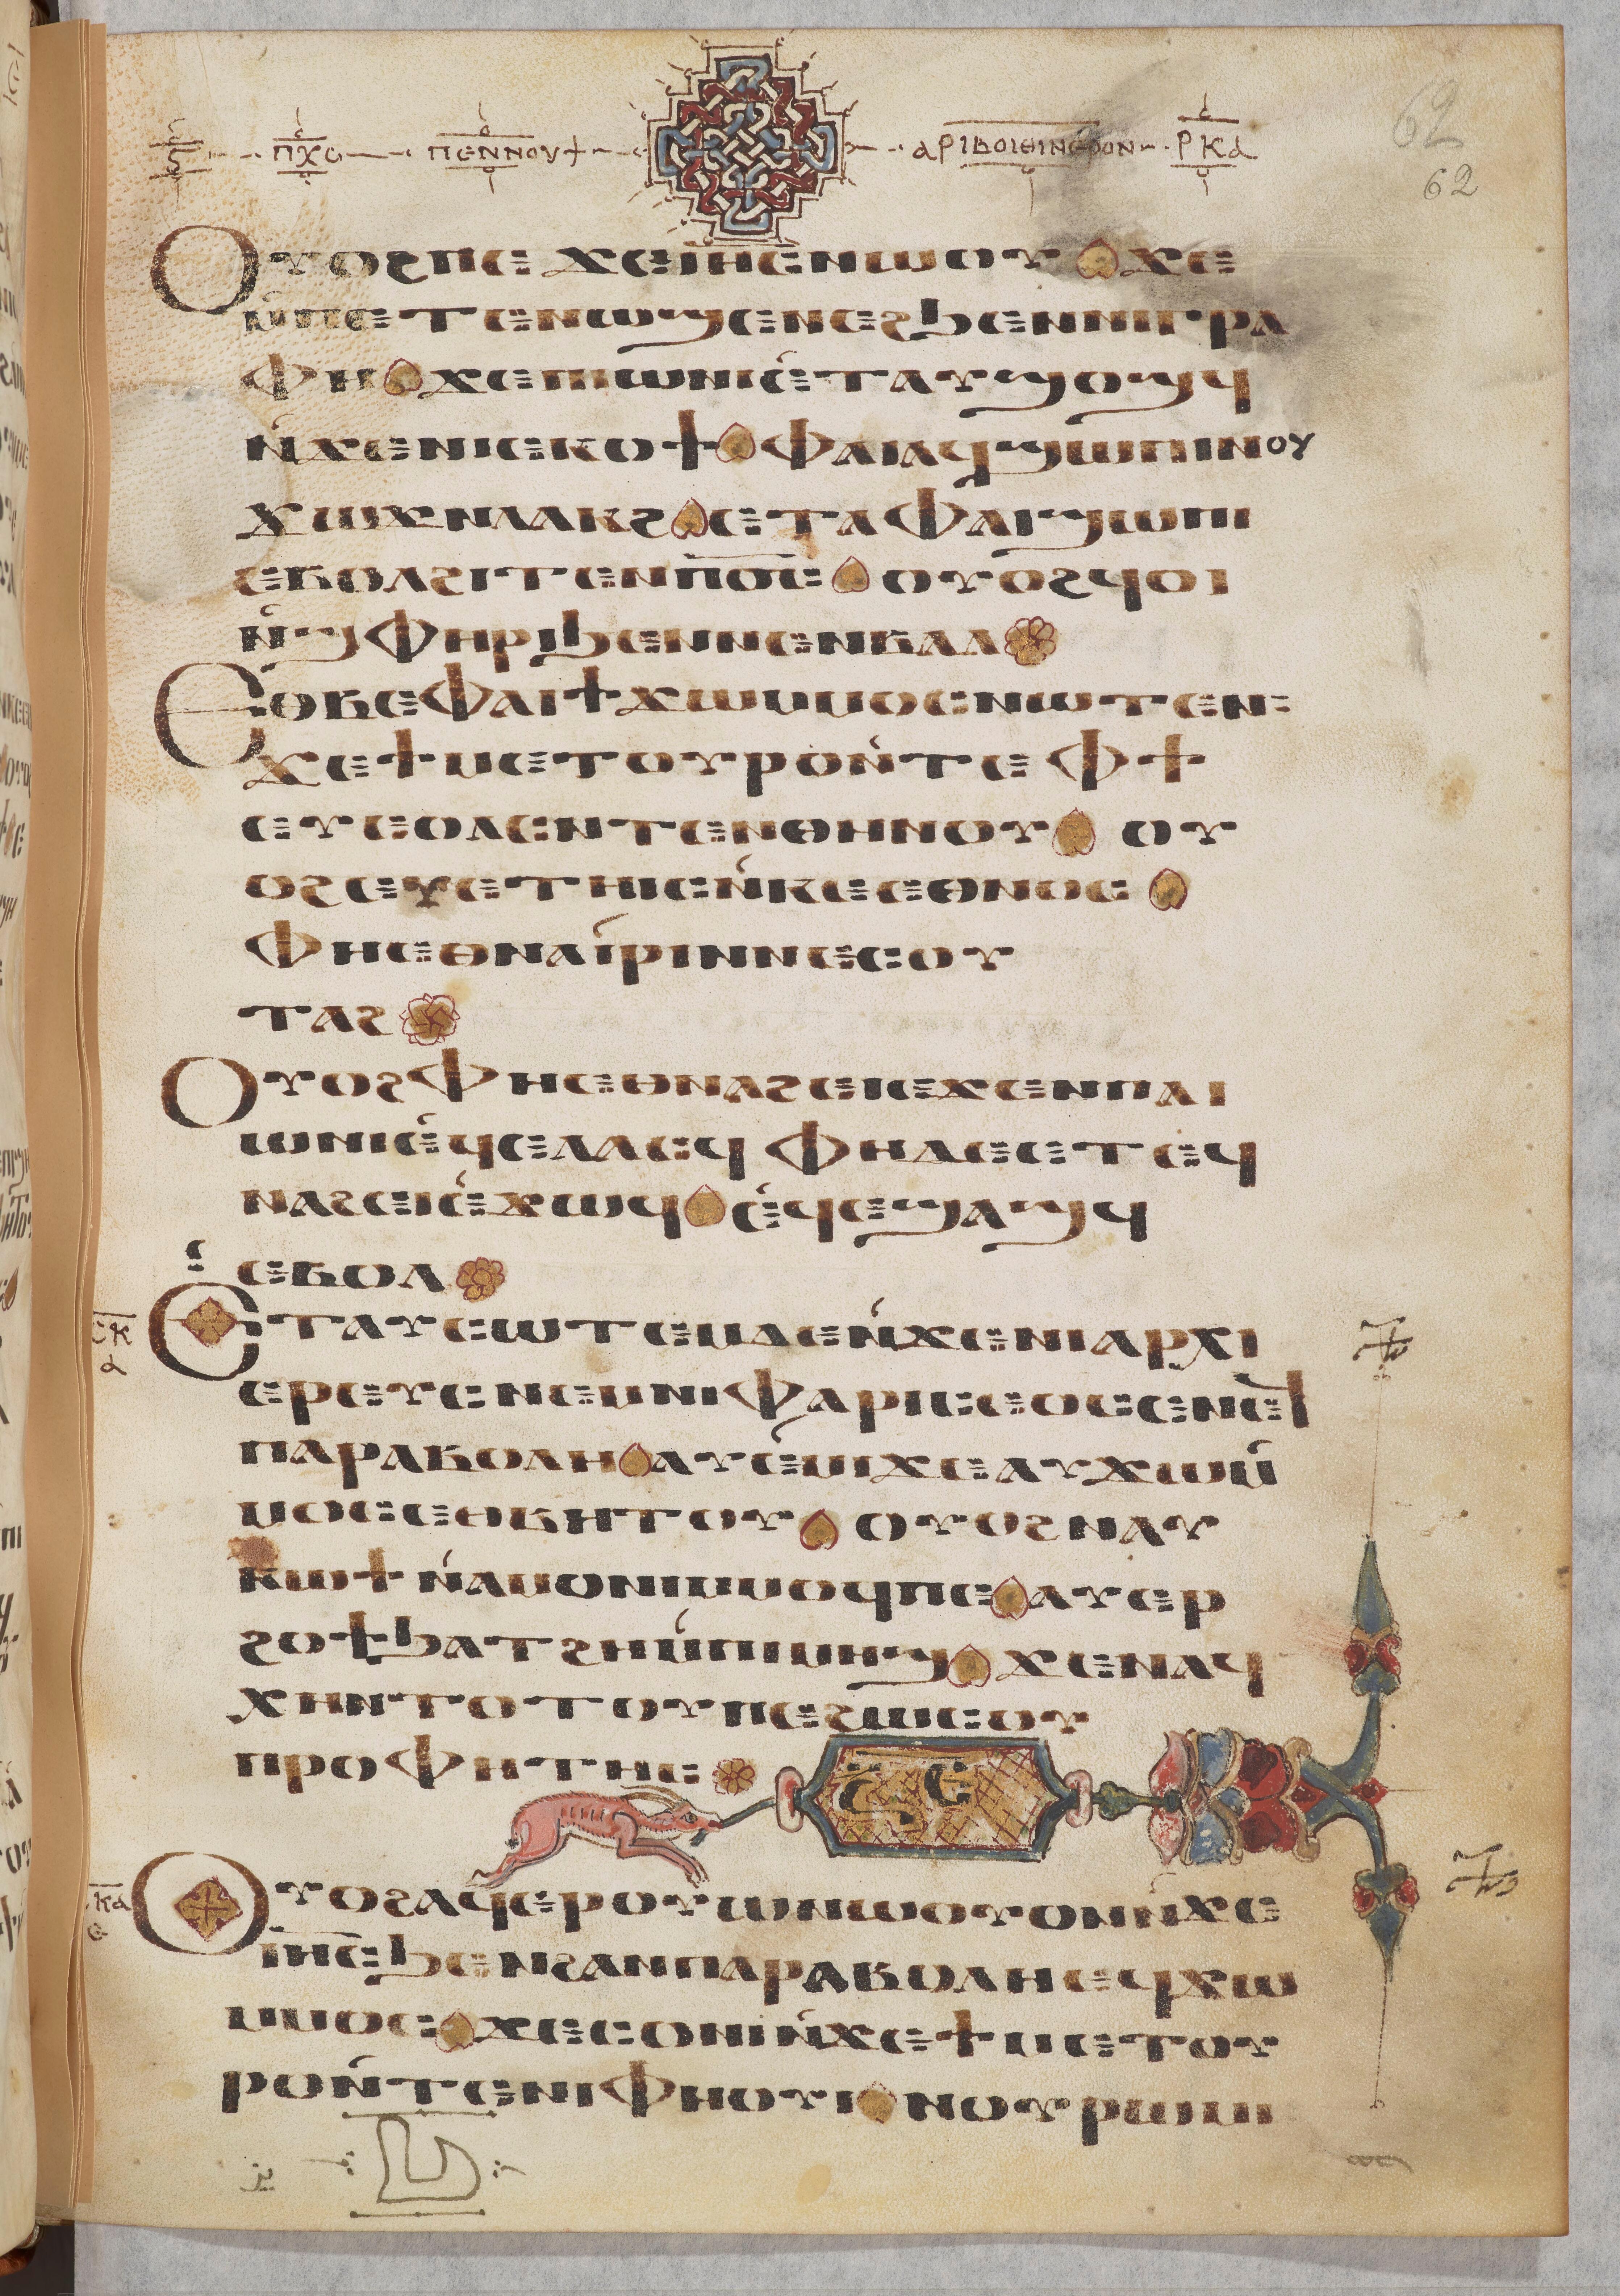 ⲋ ⲡⲭⲥ ⲡⲉⲛⲛⲟⲩϯ ⲁⲣⲓⲃⲟⲓⲑⲓⲛⲉⲣⲟⲛ ⲣⲕⲁ
62
62
Ⲟⲩⲟϩ ⲡⲉϫⲉ ⲓⲏⲥ ⲛⲱⲟⲩ ϫⲉ
ⲙ̇ⲡⲉⲧⲉⲛⲱϣ ⲉⲛⲉϩ ϧⲉⲛ ⲛⲓⲅⲣⲁ
ⲫⲏ ϫⲉ ⲡⲓⲱⲛⲓ ⲉ̇ⲧⲁⲩϣⲟϣϥ
ⲛ̇ϫⲉ ⲛⲓⲉⲕⲟϯ ⲫⲁⲓ ⲁϥϣⲱⲡⲓ ⲛⲟⲩ
ϫⲱϫ ⲛⲗⲁⲕϩ ⲉⲧⲁ ⲫⲁⲓ ϣⲱⲡⲓ
ⲉⲃⲟⲗϩⲓⲧⲉⲛ ⲡⲟⲥ ⲟⲩⲟϩ ϥⲟⲓ
ⲛ̇ϣⲫⲏⲣⲓ ϧⲉⲛ ⲛⲉⲛⲃⲁⲗ
Ⲉⲑⲃⲉ ⲫⲁⲓ ϯϫⲱ ⲙⲙⲟⲥ ⲛⲱⲧⲉⲛ
ϫⲉ ϯⲙⲉⲧⲟⲩⲣⲟ ⲛ̇ⲧⲉ ⲫϯ
ⲉⲩⲉⲟⲗⲥ ⲛⲧⲉⲛ ⲑⲏⲛⲟⲩ ⲟⲩ
ⲟϩ ⲉⲩⲉⲧⲏⲓⲥ ⲛ̇ⲕⲉⲉⲑⲛⲟⲥ
ⲫⲏ ⲉⲑⲛⲁⲓ̇ⲣⲓ ⲛⲛⲉⲥⲟⲩ
ⲧⲁϩ
Ⲟⲩⲟϩ ⲫⲏ ⲉⲑⲛⲁϩⲉⲓ ⲉϫⲉⲛ ⲡⲁⲓ
ⲱⲛⲓ ⲉ̇ϥⲉⲗⲁⲥϥ ⲫⲏ ⲇⲉ ⲉⲧⲉϥ
ⲛⲁϩⲉⲓ ⲉ̇ϫⲱϥ ⲉ̇ϥⲉϣⲁϣϥ
ⲉⲃⲟⲗ
Ⲉⲧⲁⲩⲥⲱⲧⲉⲙ ⲇⲉ ⲛ̇ϫⲉ ⲛⲓⲁⲣⲭⲓ
ⲉⲣⲉⲩⲥ ⲛⲉⲙ ⲛⲓⲫⲁⲣⲓⲥⲉⲟⲥ ⲉⲛⲉϥ
ⲡⲁⲣⲁⲃⲟⲗⲏ ⲁⲩⲉ̇ⲙⲓ ϫⲉ ⲁⲩϫⲱ ⲙ̇
ⲙⲟⲥ ⲉⲑⲃⲏⲧⲟⲩ ⲟⲩⲟϩ ⲛⲁⲩ
ⲕⲱϯ ⲛ̇ⲁⲙⲟⲛⲓ ⲙⲙⲟϥ ⲡⲉ ⲁⲩⲉⲣ
ϩⲟϯ ϧⲁⲧϩⲏ ⲙ̇ⲡⲓⲙⲏϣ ϫⲉ ⲛⲁϥ
ⲭⲏ ⲛⲧⲟⲧⲟⲩ ⲡⲉ ϩⲱⲥ ⲟⲩ
ⲡⲣⲟⲫⲏⲧⲏⲥ
Ⲟⲩⲟϩ ⲁϥⲉⲣⲟⲩⲱ ⲛⲱⲟⲩ ⲟⲛ ⲛ̇ϫⲉ
ⲓⲏⲥ ϧⲉⲛ ϩⲁⲛⲡⲁⲣⲁⲃⲟⲗⲏ ⲉϥϫⲱ
ⲙⲙⲟⲥ ϫⲉ ⲥⲟⲛⲓ ⲛ̇ϫⲉ ϯⲙⲉⲧⲟⲩ
ⲣⲟ ⲛ̇ⲧⲉ ⲛⲓⲫⲏⲟⲩⲓ ⲛⲟⲩⲣⲱⲙⲓ